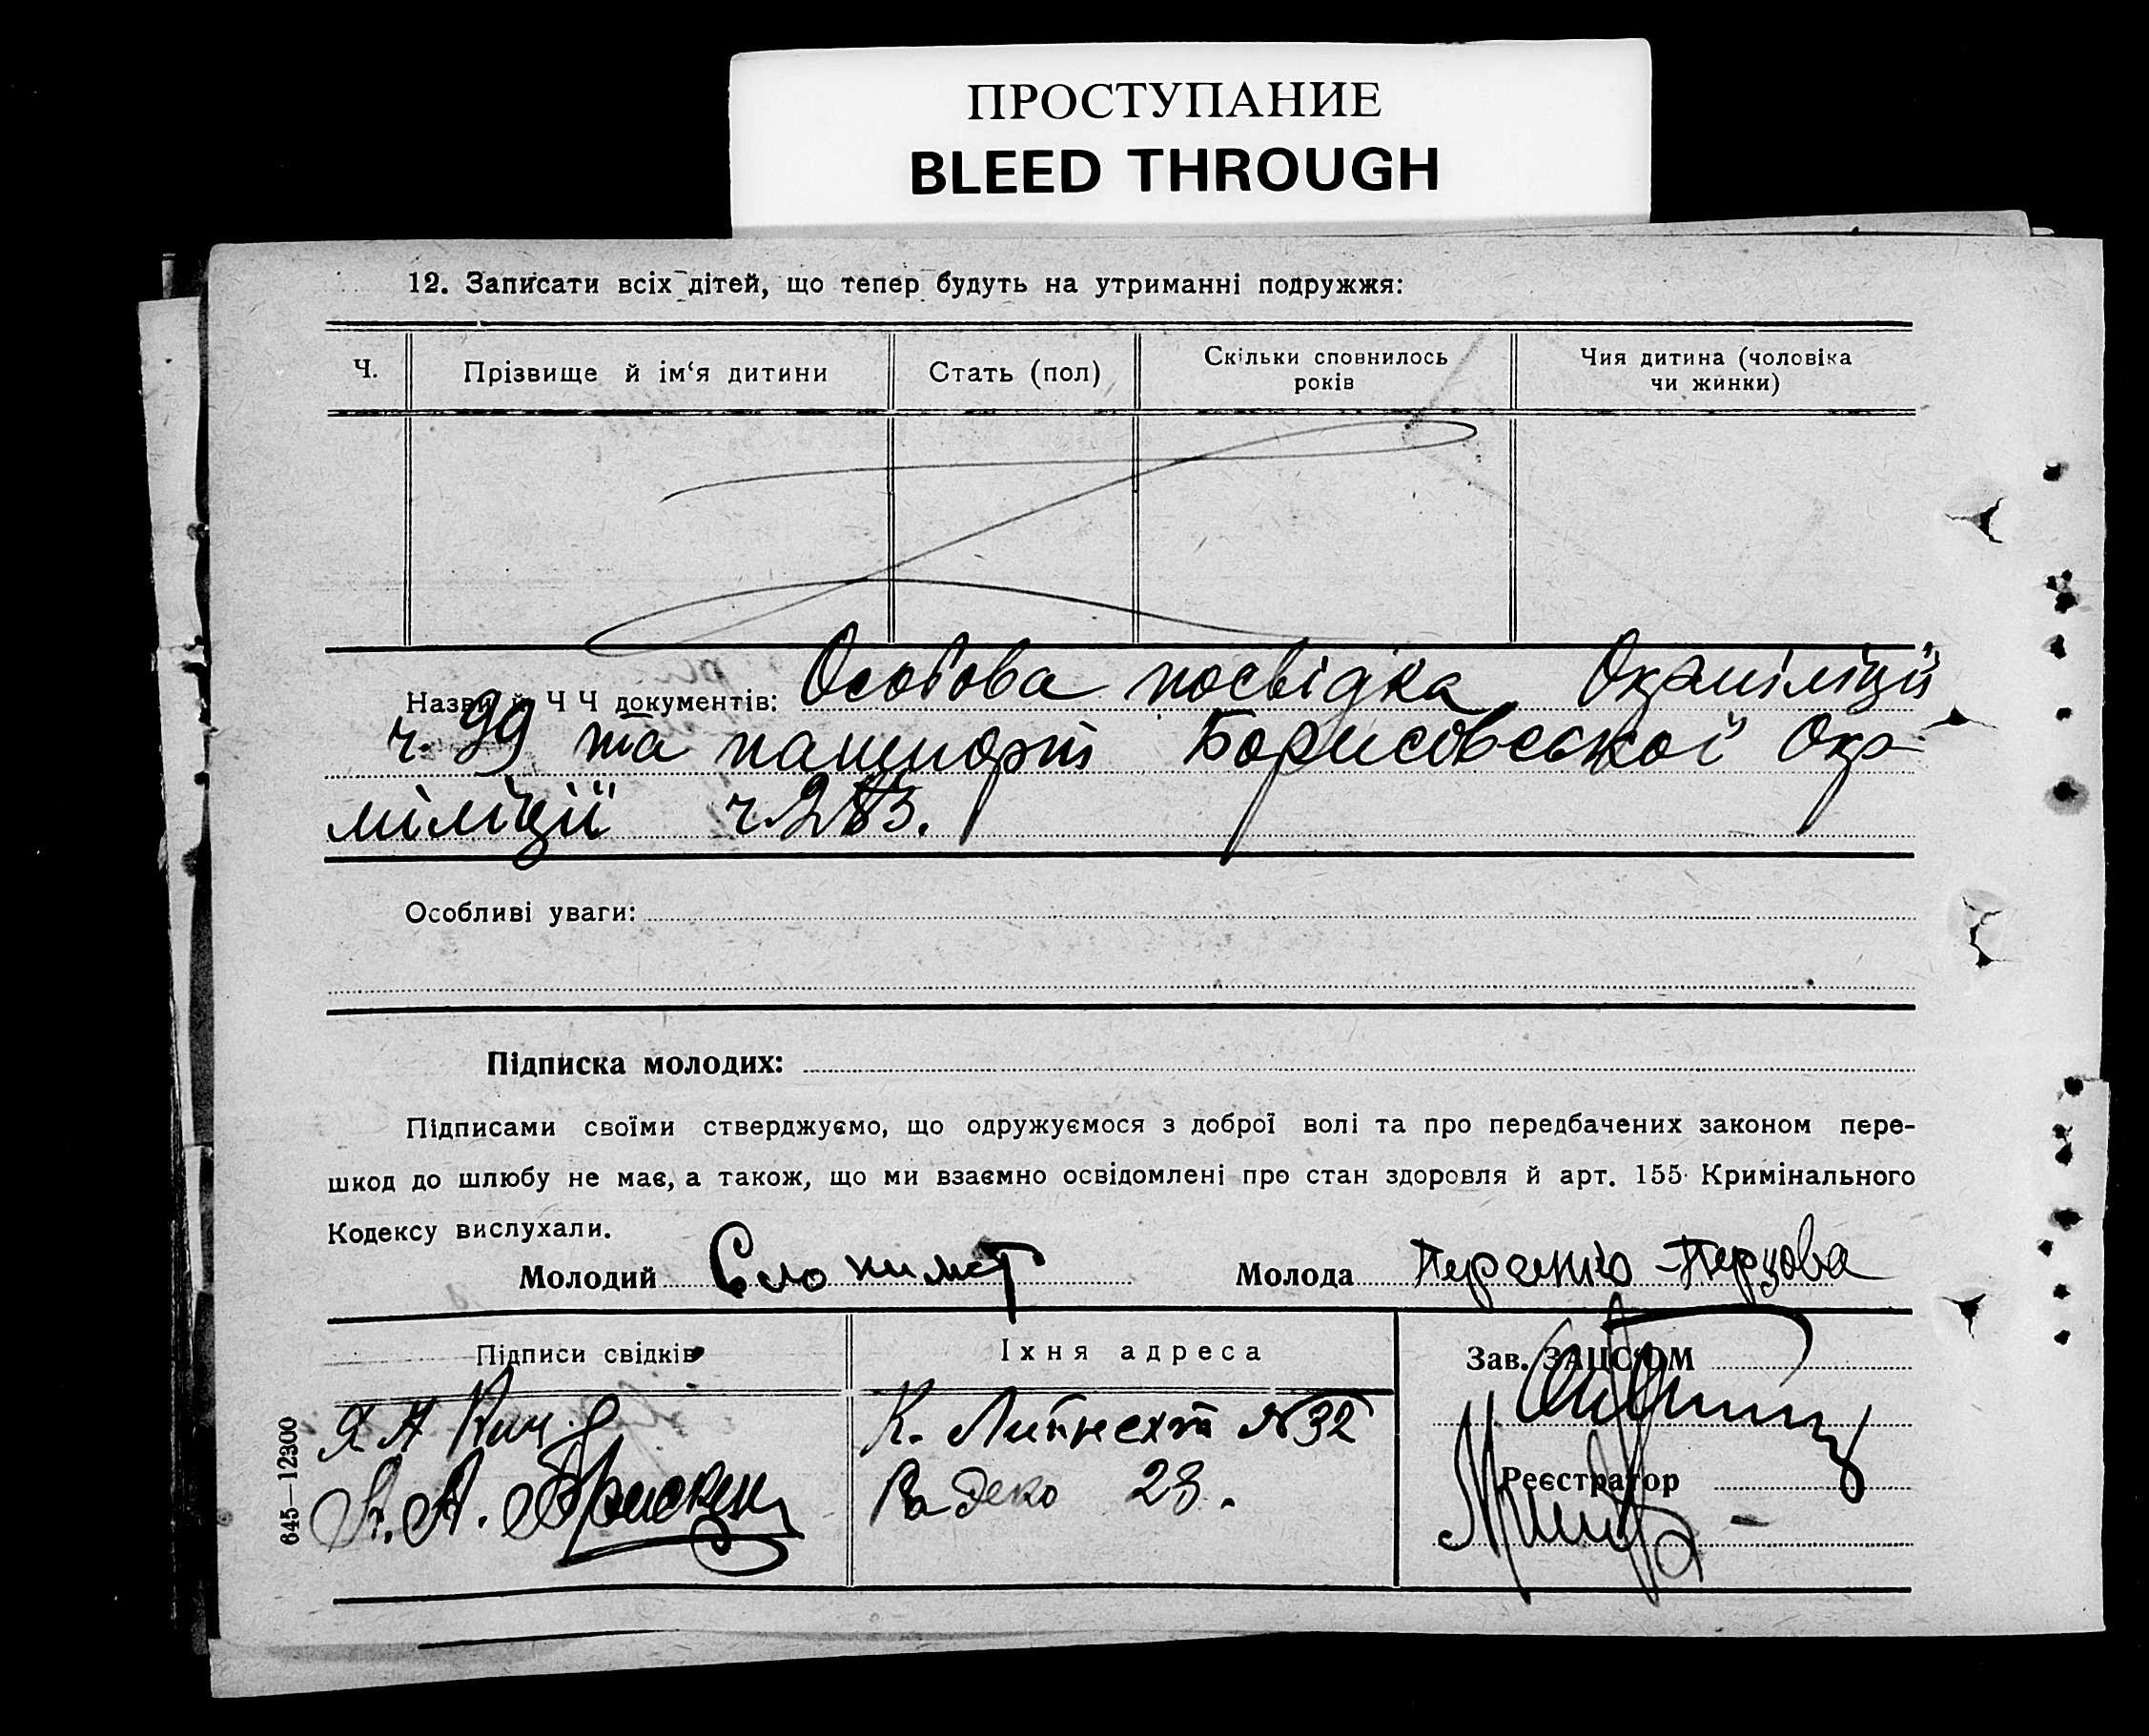 ПРОСТУПАНИЕ
BLEED THROUGH
12. Записати всіх дітей, що тепер будуть на утриманні подружжя:
Ч.
Прізвище й ім‘я дитини
Стать (пол)
Скільки сповнилось
років
Чия дитина (чоловіка
чи жинки)
Назви й Ч Ч документів: Особова посвідка Окрміліції
ч. 99 та пашпорт Борисовської Окр
міліції ч.
Особливі уваги:
Підписка молодих:
Підписами своїми стверджуємо, що одружуємося з доброї волі та про передбачених законом пере-
шкод до шлюбу не має, а також, що ми взаємно освідомлені про стан здоровля й арт. 155 Кримінального
Кодексу вислухали.
Молодий
Молода -Перцова
Підписи свідків
Їхня адреса
Зав. ЗАЦС'ОМ
К. Лібнехт №32
Радеко 23.
Реєстратор
645—12300